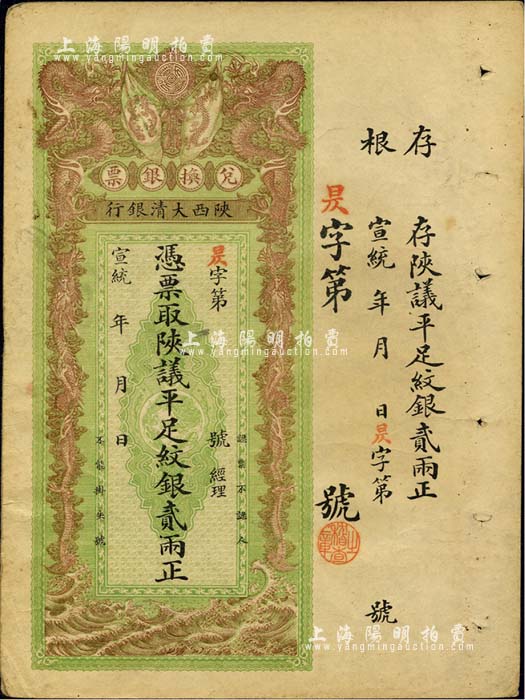 上海陽明拍賣
www.yangmingauction.com
存根
存陜議平足紋銀貳兩正
宣統 年 月 日 昃字第 號
昃字第 號
兌換銀票
陜西大清銀行
認票不認人
昃字第 號 經理
憑票取陜議平足紋銀貳兩正
宣統 年 月 日
不能掛失號
上海陽明拍賣
www.yangmingauction.com
上海陽明拍賣
www.yangmingauction.com